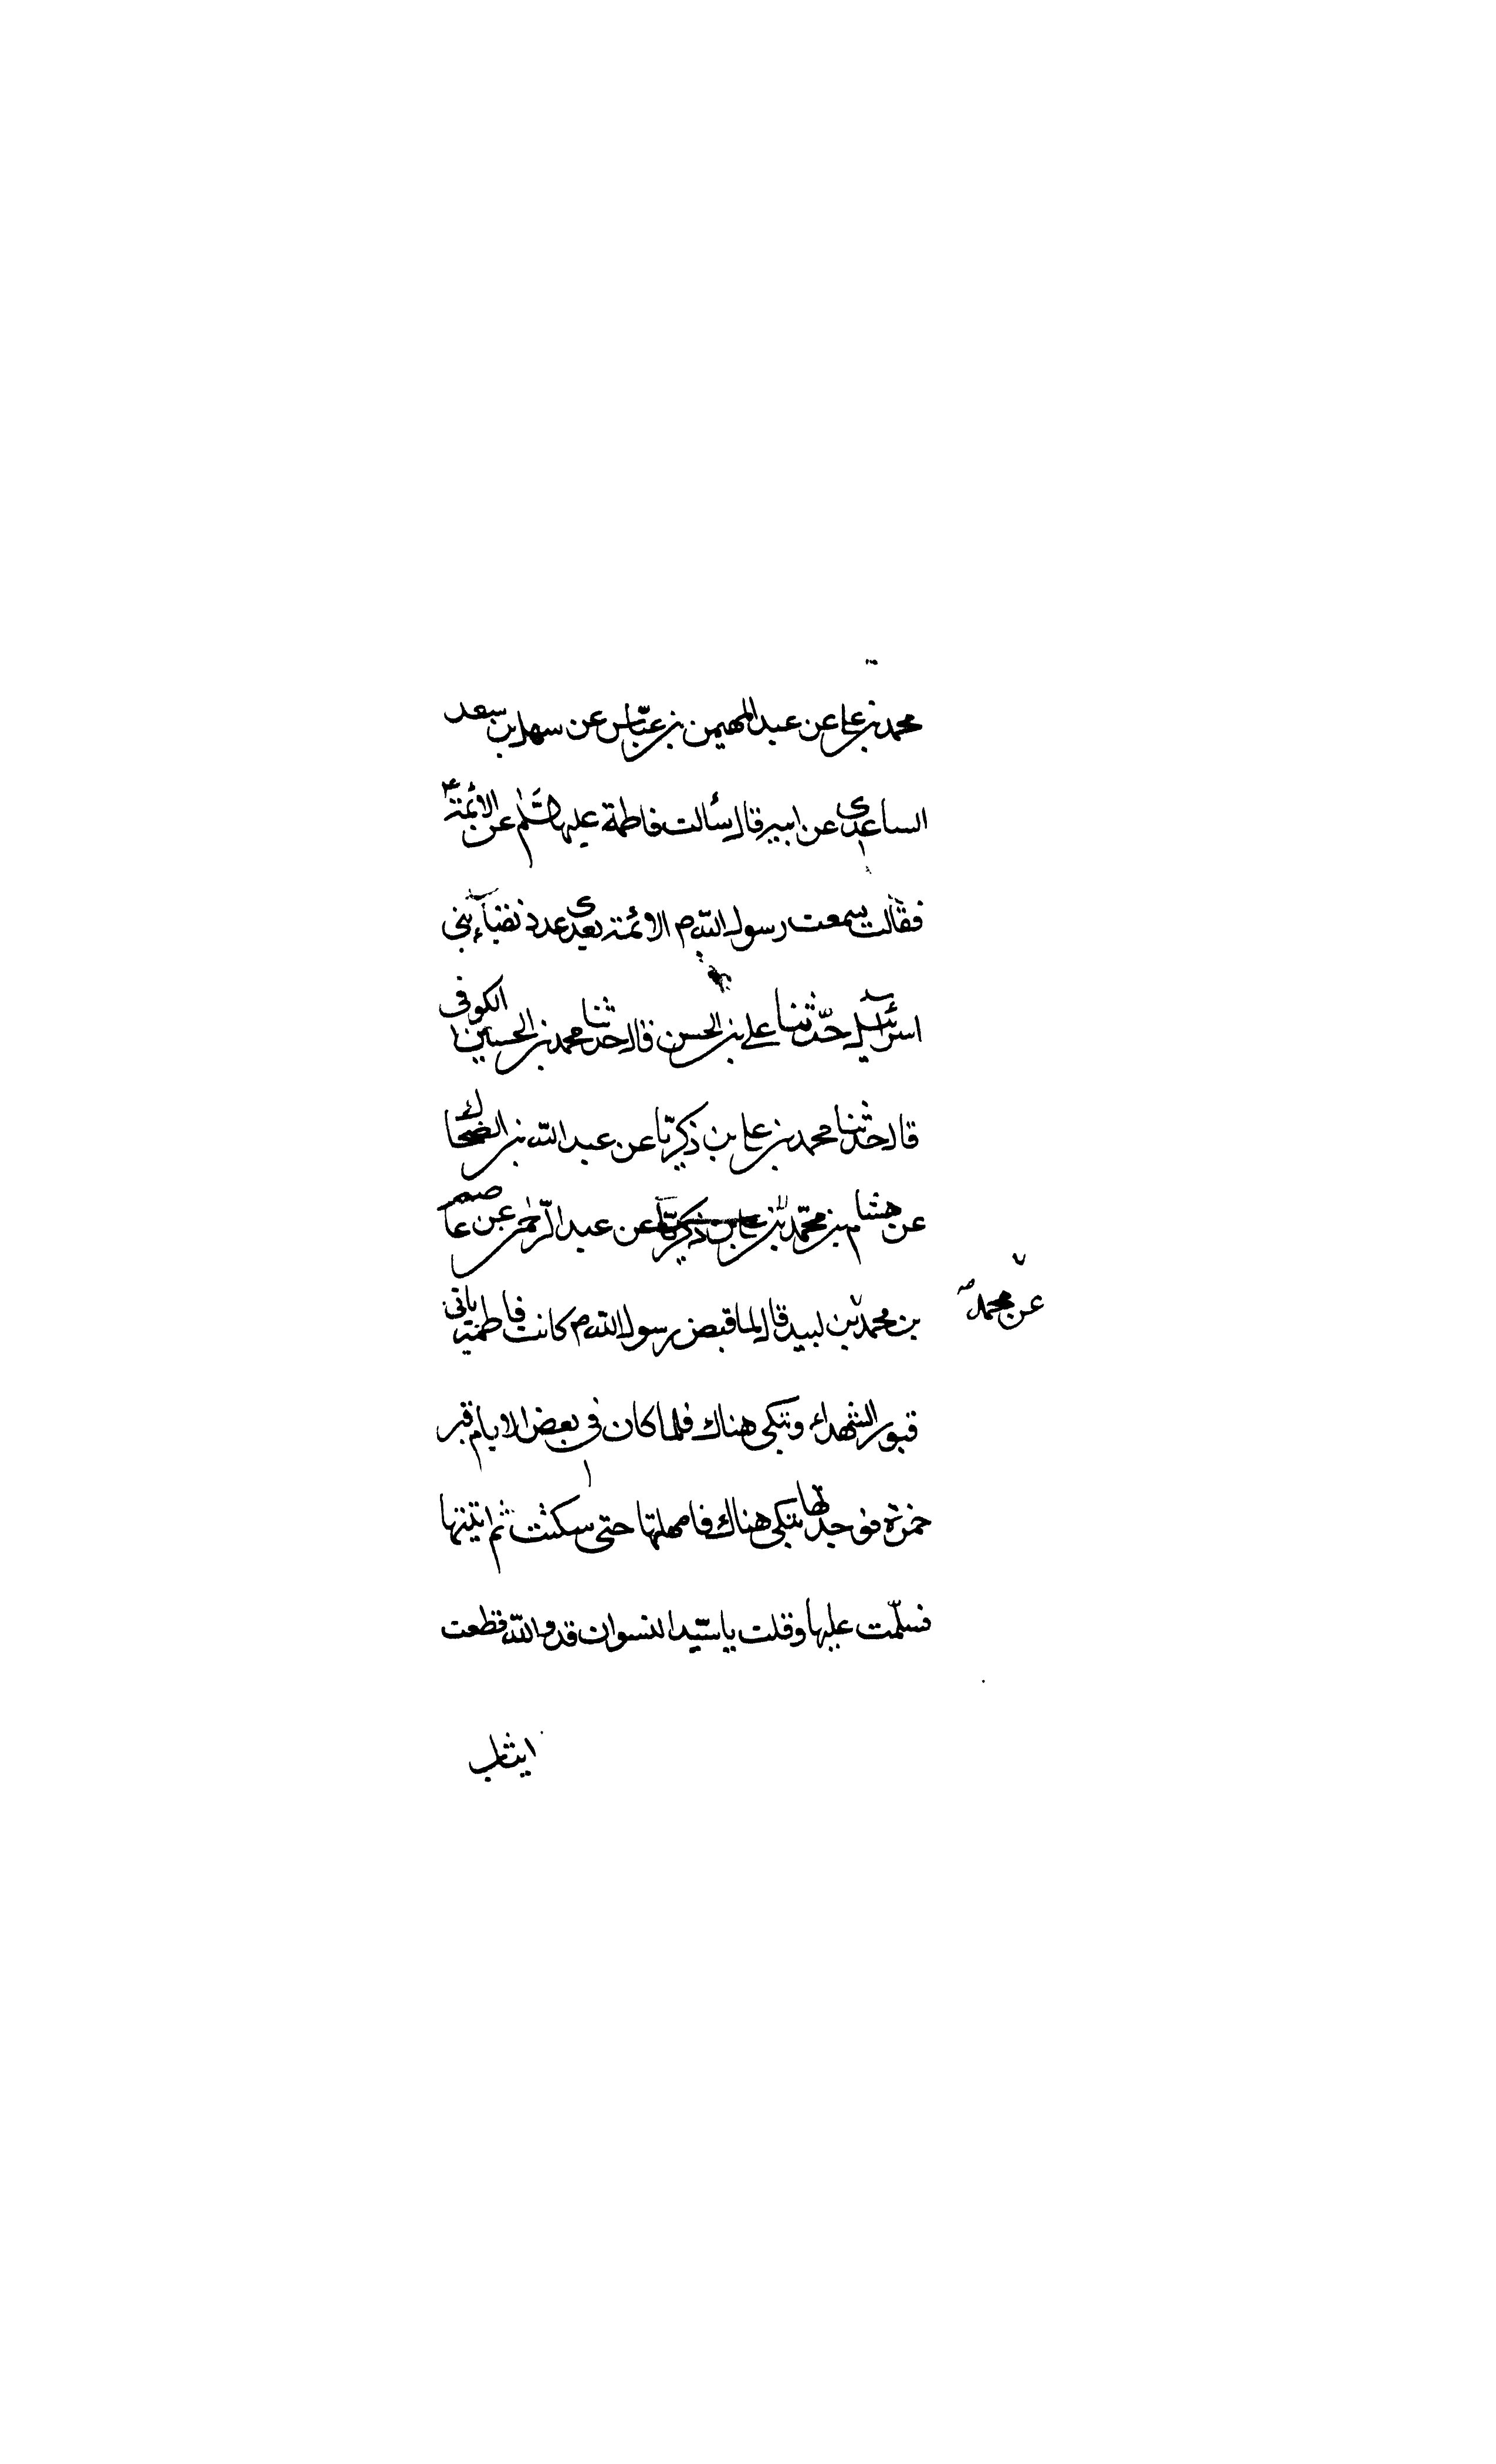 محمد بن علي عن عبد المهيمن بن عباس عن سهل بن سعد
الساعدى عن ابيه قال سألت فاطمة عليها السّلم عن الائمة
فقالت سمعت رسول الله ص الائمة بعدى عدد نقباء بنى
اسرائيل حدّثنا علي بن الحسن قال حدثنا محمد بن الحسين الكوفى
قال حدثنا محمد بن علي بن ذكريّا عن عبد الله بن الضحاك
عن هشام بن محمّد بن علي بن ذكريّا عن عبد الرّحمن عن عاصم
عن محمد صح
بن محمد بن لبيد قال لما قبض رسول الله ص كانت فاطمة ياتى
قبور الشهداء وتبكى هناك فلما كان فى بعض الايام قبر
حمزة فوجدتها تبكى هناك فامهلتها حتى سكنت ثم اتيتها
فسلّمت عليها وقلت يا سيّد النسوان قد والله قطعت